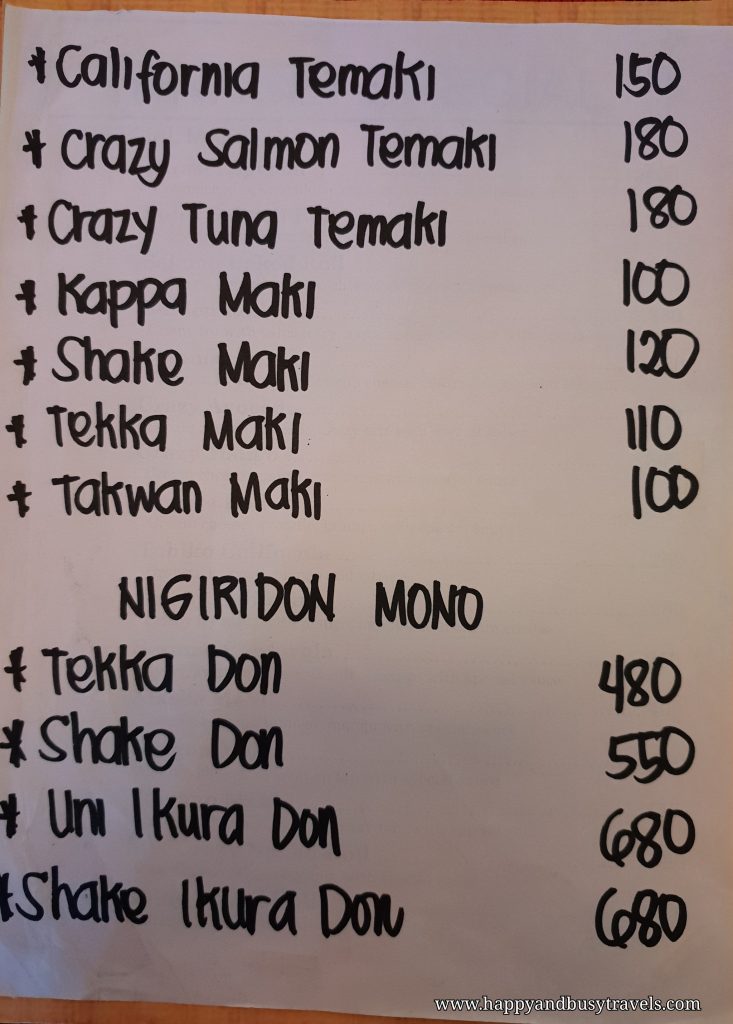 * California Temaki 150
* Crazy Salmon Temaki 180
* Crazy Tuna Temaki 180
* Kappa Maki 100
* Shake Maki 120
* Tekka Maki 110
* Takwan Maki 100
NIGIRIDON MONO
* Tekka Don 480
* Shake Don 550
* Uni Ikura Don 680
* Shake Ikura Don 680
www.happyandbusytravels.com